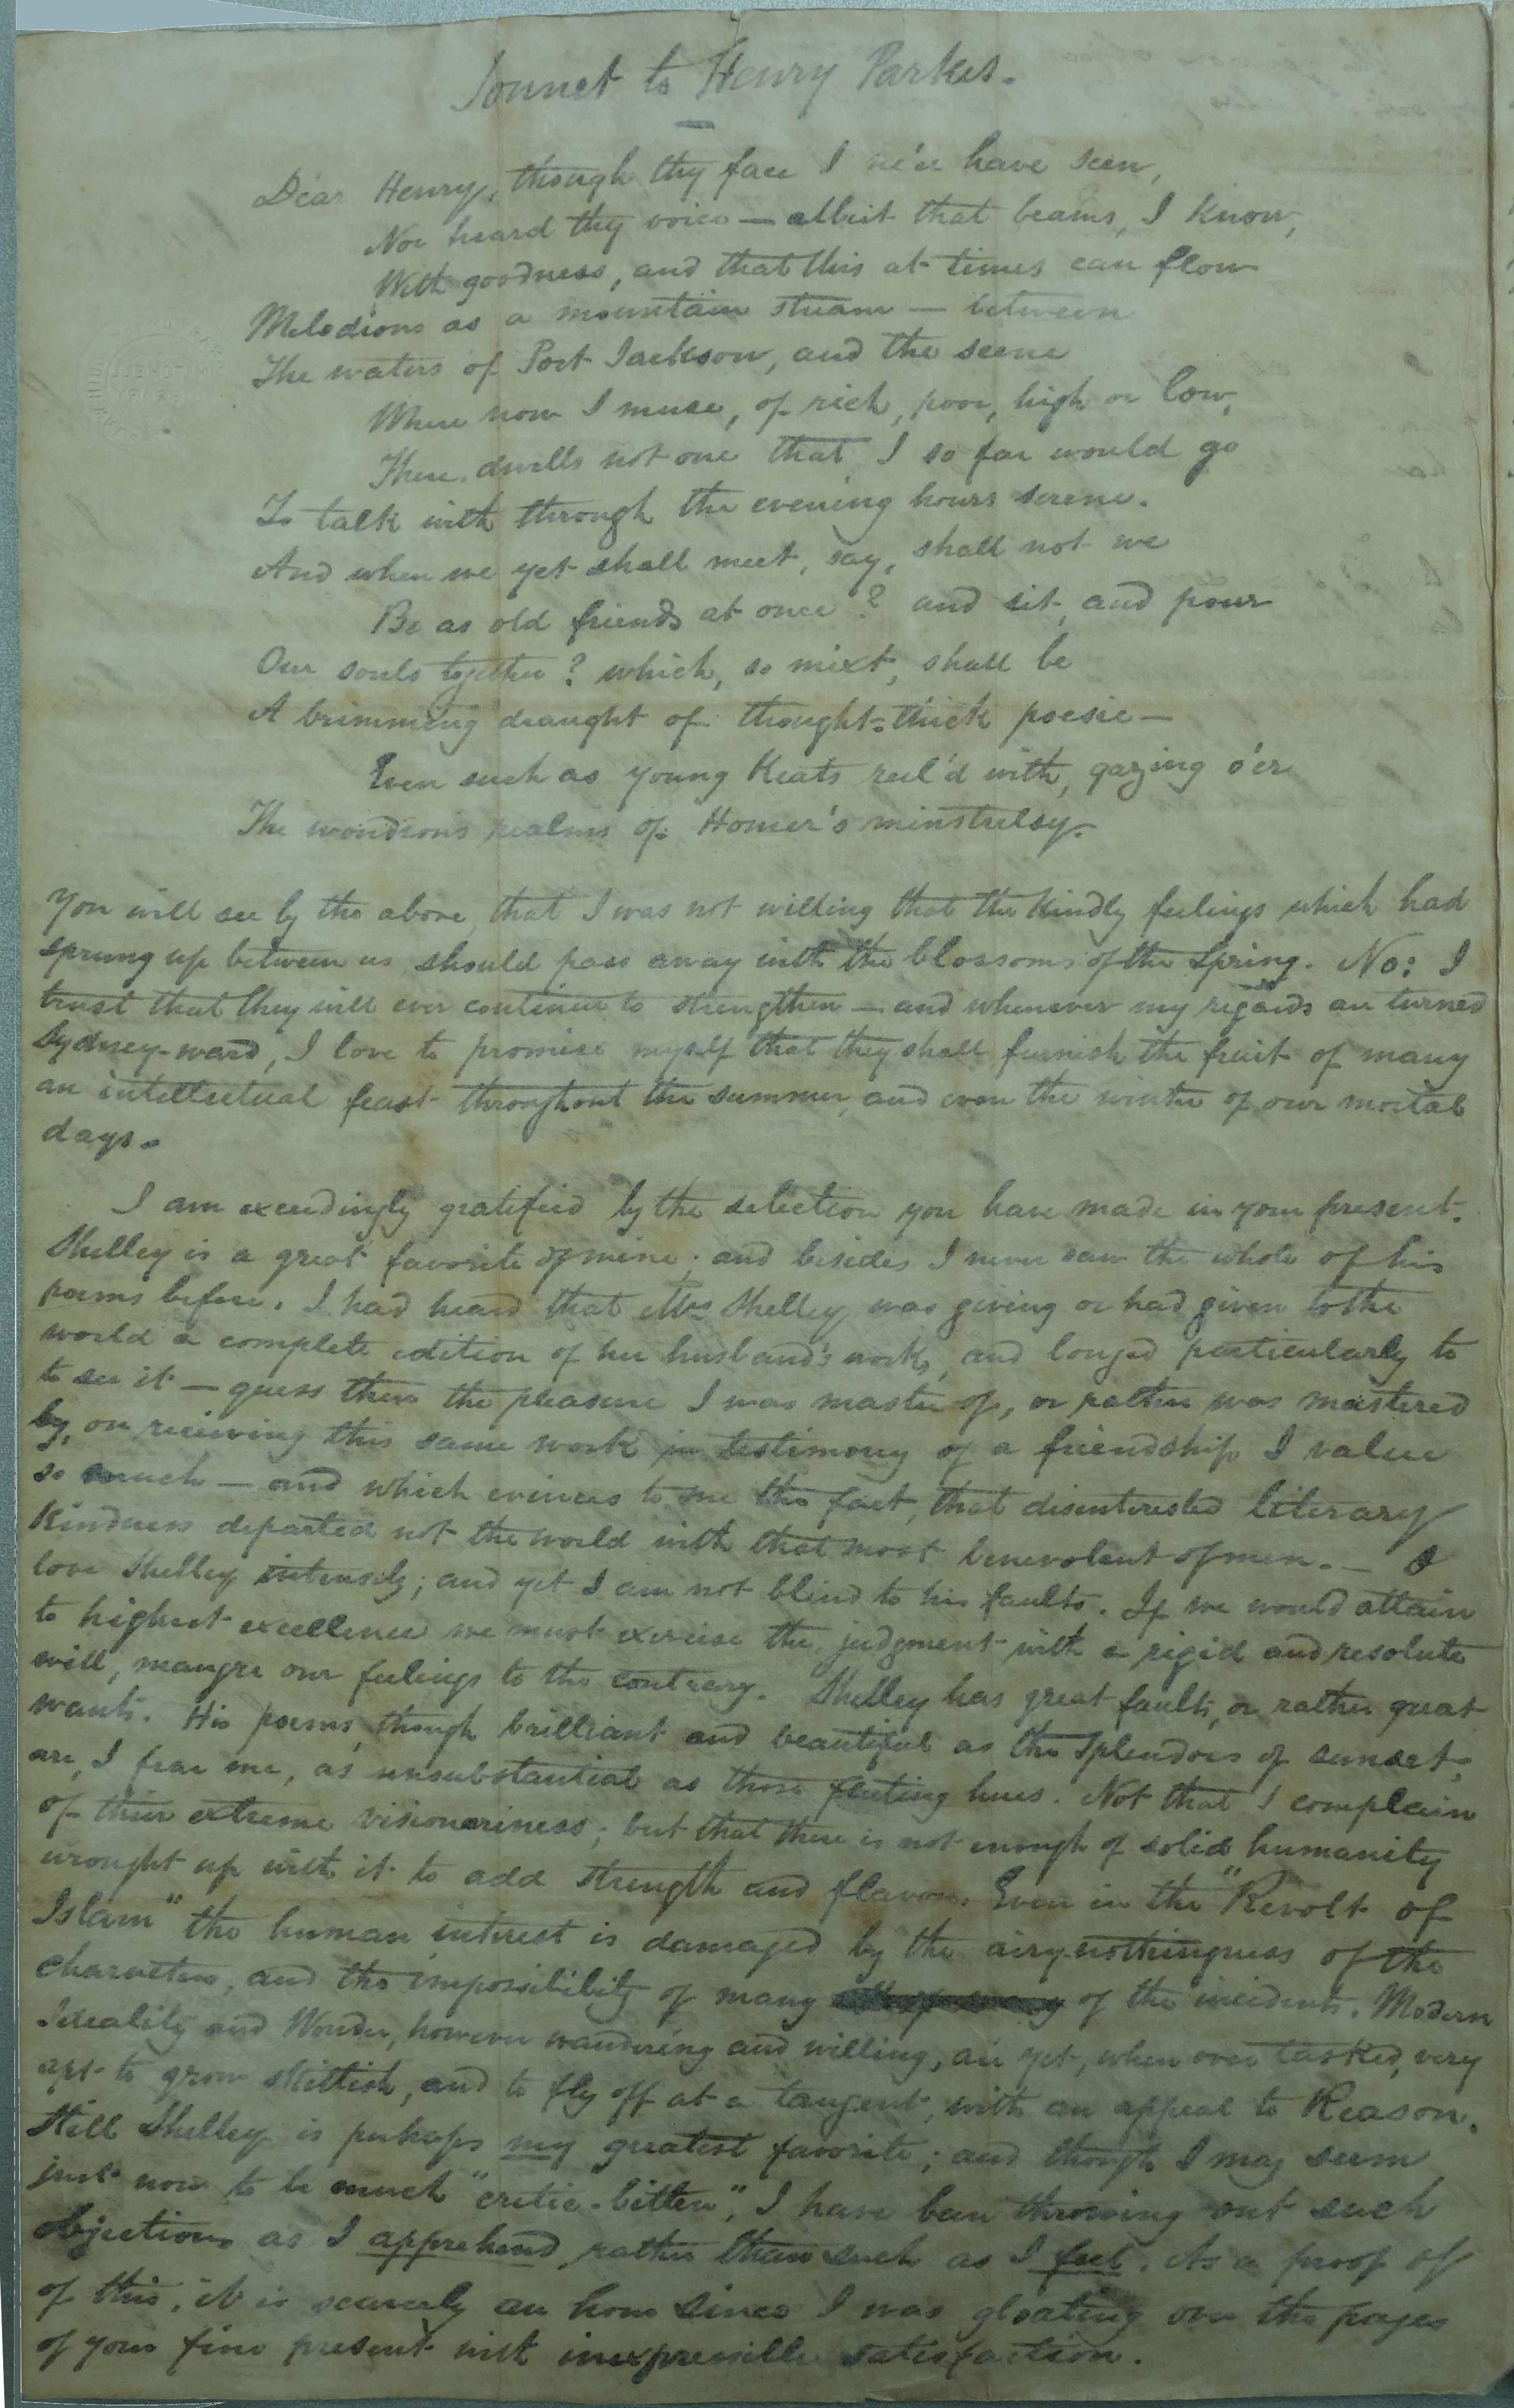 Sonnet to Henry Parkes.
Dear Henry, though thy face I ne'er have seen,
Nor heard thy voice — albeit that beams, I know,
With goodness, and that this at times can flow
Melodious as a mountain stream — between
The waters of Port Jackson, and the scene
Where now I muse, of rich, poor, high or low,
There dwells not one that I so far would go
To talk with through the evening hours serene.
And when we yet shall meet, say, shall not we
Be as old friends at once? and sit, and pour
Our souls together? which, so mixt, shall be
A brimming draught of thought-thick poesie —
Even such as young Keats reel'd with, gazing o'er
The wondrous realms of Homer's minstrelsy.
You will see by the above, that I was not willing that the kindly feelings which had
sprung up between us, should pass away with the blossoms of the Spring. No: I
trust that they will ever continue to strengthen — and whenever my regards are turned
Sydney-ward, I love to promise myself that they shall furnish the fruit of many
an intellectual feast throughout the summer, and even the winter of our mortal
days.
I am exceedingly gratified by the selection you have made in your present.
Shelley is a great favorite of mine; and besides I never saw the whole of his
poems before. I had heard that Mrs Shelley was giving or had given to the
world a complete edition of her husband's works, and longed particularly to
to see it — guess then the pleasure I was master of, or rather was mastered
by, on receiving this same work in testimony of a friendship I value
so much — and which evinces to me the fact, that disinterested literary
kindness departed not the world with that most benevolent of men. — I
love Shelley intensely; and yet I am not blind to his faults. If we would attain
to highest excellence we must exercise the judgment with a rigid and resolute
will, maugre our feelings to the contrary. Shelley has great faults, or rather great
wants. His poems, though brilliant and beautiful as the splendors of sunset,
are, I fear me, as unsubstantial as those fleeting hues. Not that I complain
of their extreme visionariness; but that there is not enough of solid humanity
wrought up with it to add strength and flavor. Even in the "Revolt of
Islam" the human interest is damaged by the airy-nothingness of the
characters, and the impossibility of many of the incidents. Modern
Ideality and Wonder, however wandering and willing, are yet, when over tasked, very
apt to grow skittish, and to fly off at a tangent, with an appeal to Reason.
Still Shelley is perhaps my greatest favorite; and though I may seem
just now to be much "critic-bitten", I have been throwing out such
objections as I apprehend, rather than such as I feel. As a proof of
of this, it is scarcely an hour since I was gloating over the pages
of your fine present with inexpressible satisfaction.